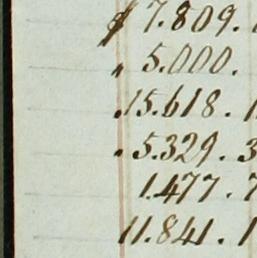 $ 7.809.
" 5.000.
" 15.618. 1
" 5.329. 3
1.477. 7
11.841. 1